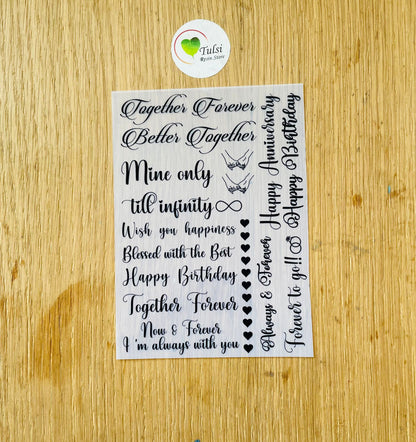 Tulsi
Resin Store
Together Forever
Better Together
Mine only
till infinity
Wish you happiness
Blessed with the Best
Happy Birthday
Together Forever
Now & Forever
I 'm always with you
Happy Anniversary
Happy Birthday
Always & Forever
Forever to go!!